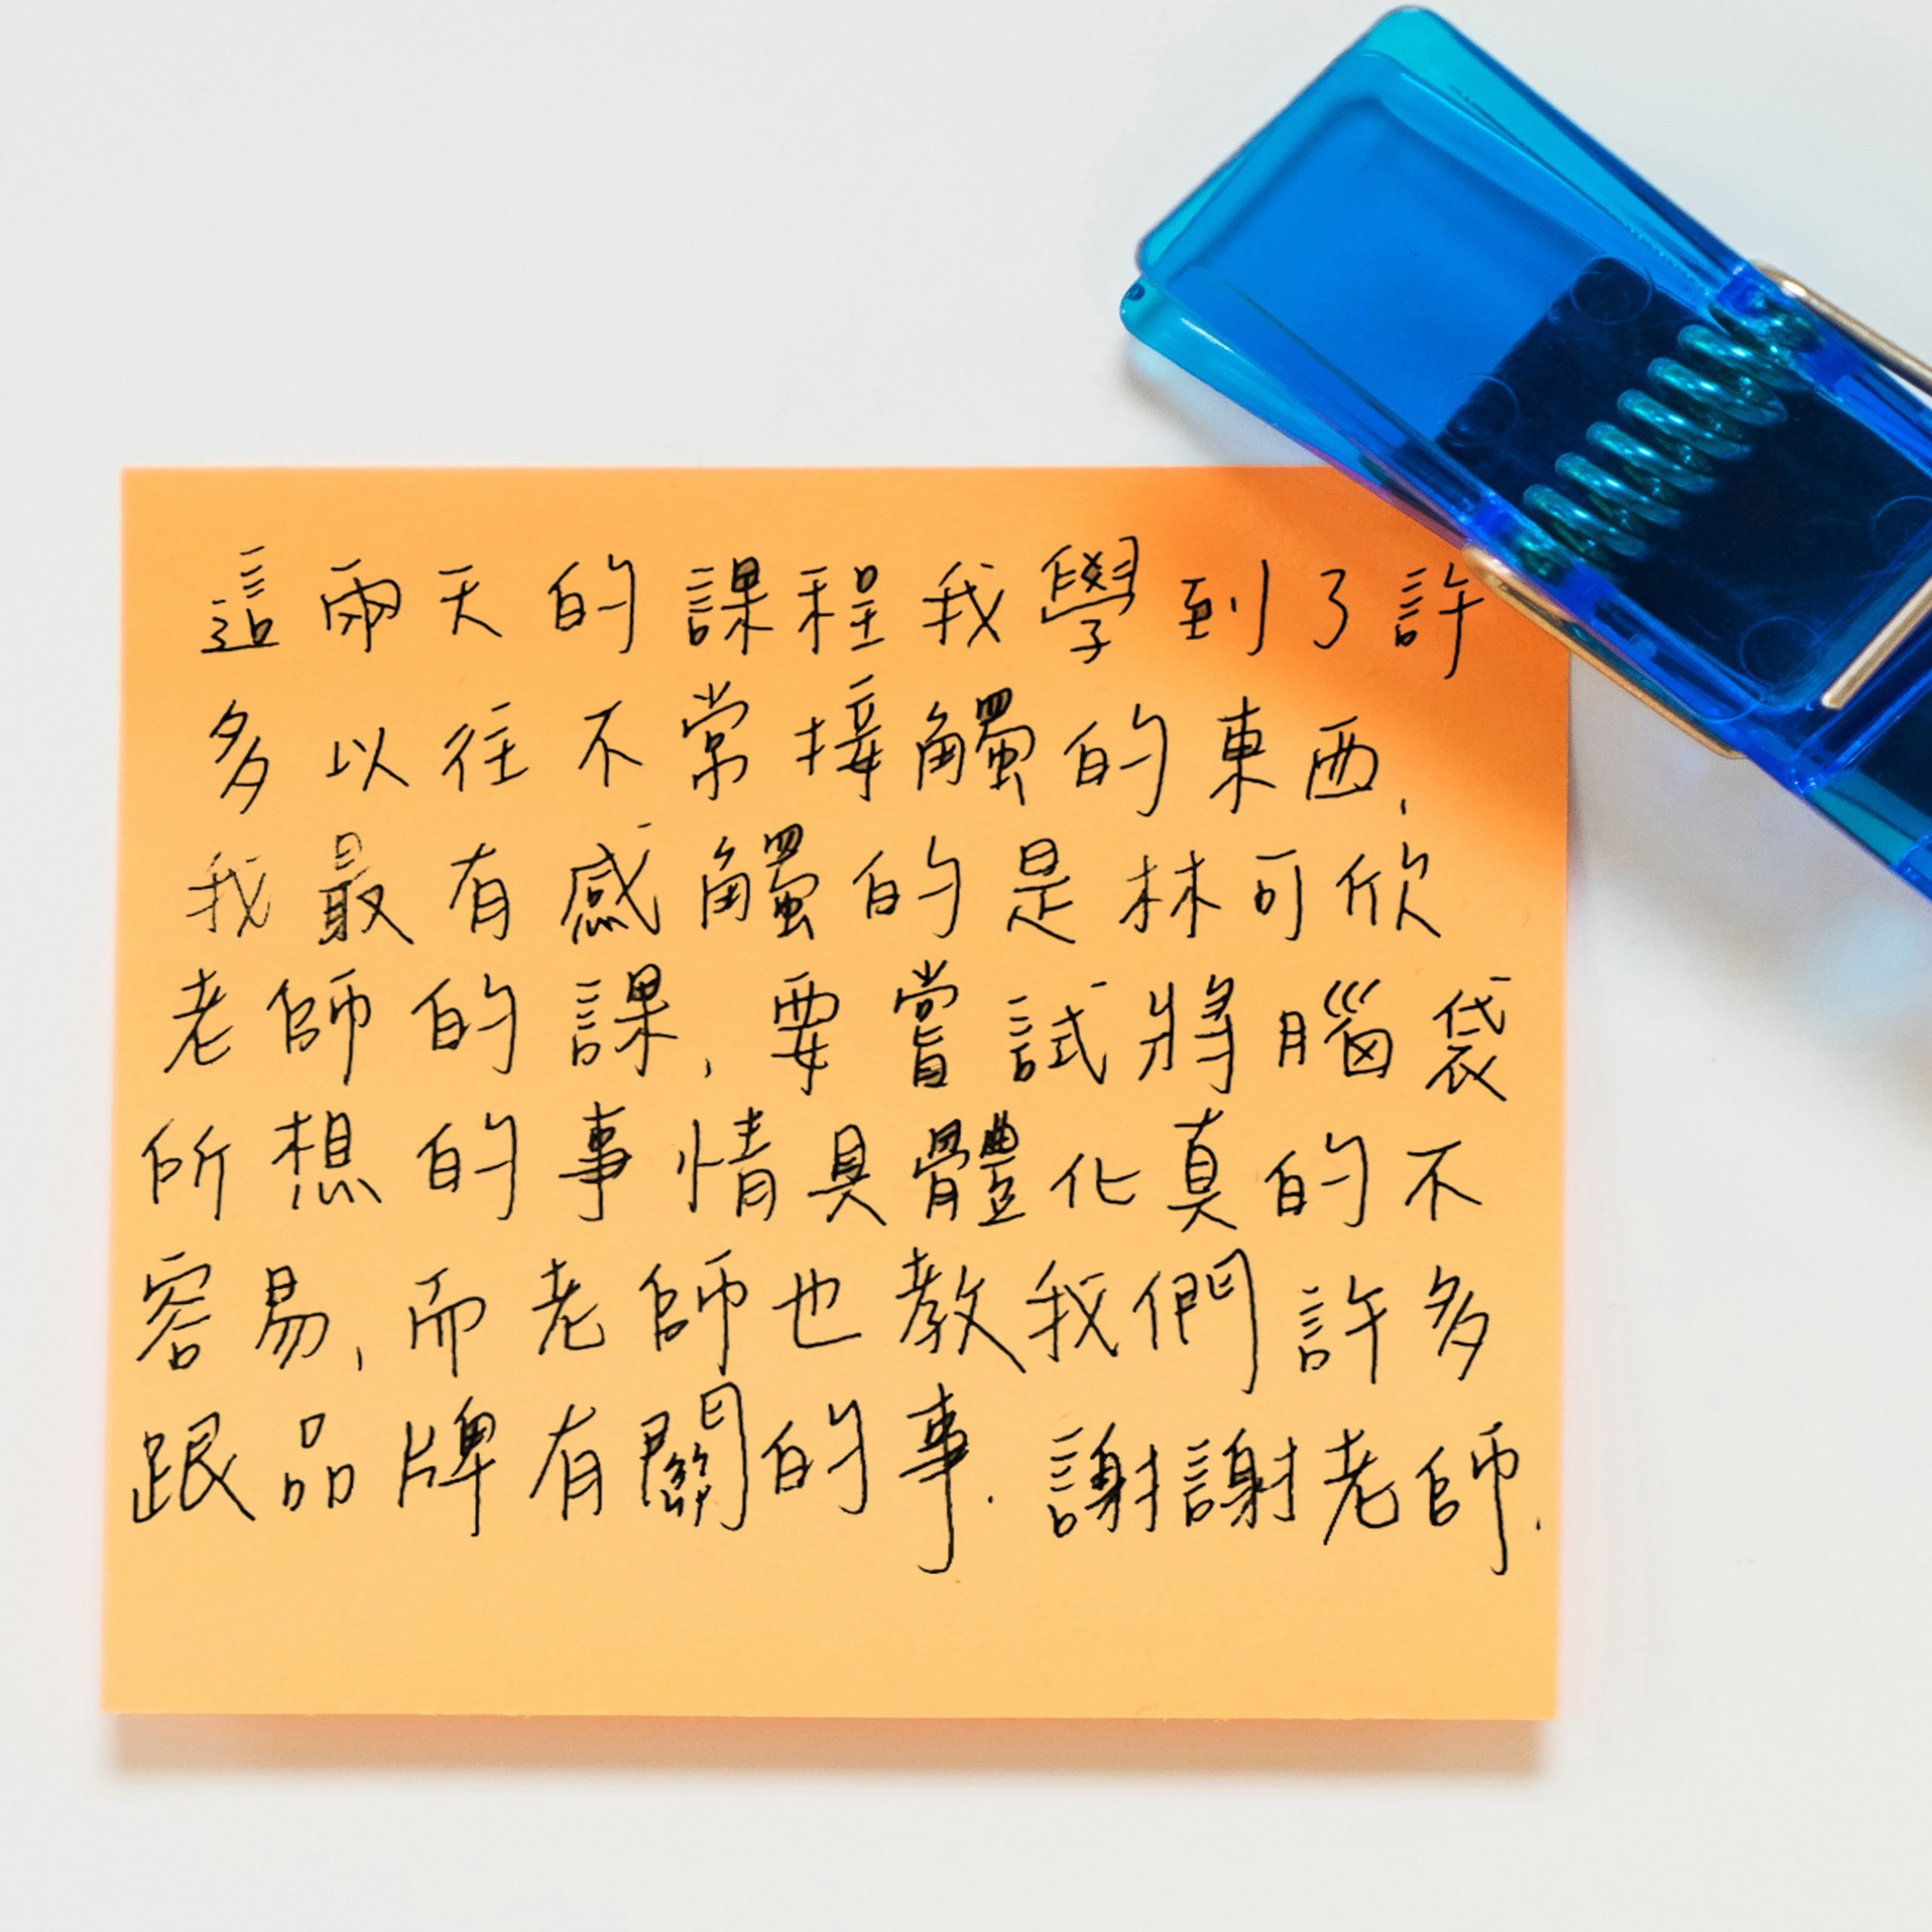 這兩天的課程我學到了許
多以往不常接觸的東西,
我最有感觸的是林可欣
老師的課,要嘗試將腦袋
所想的事情具體化真的不
容易,而老師也教我們許多
跟品牌有關的事.謝謝老師.